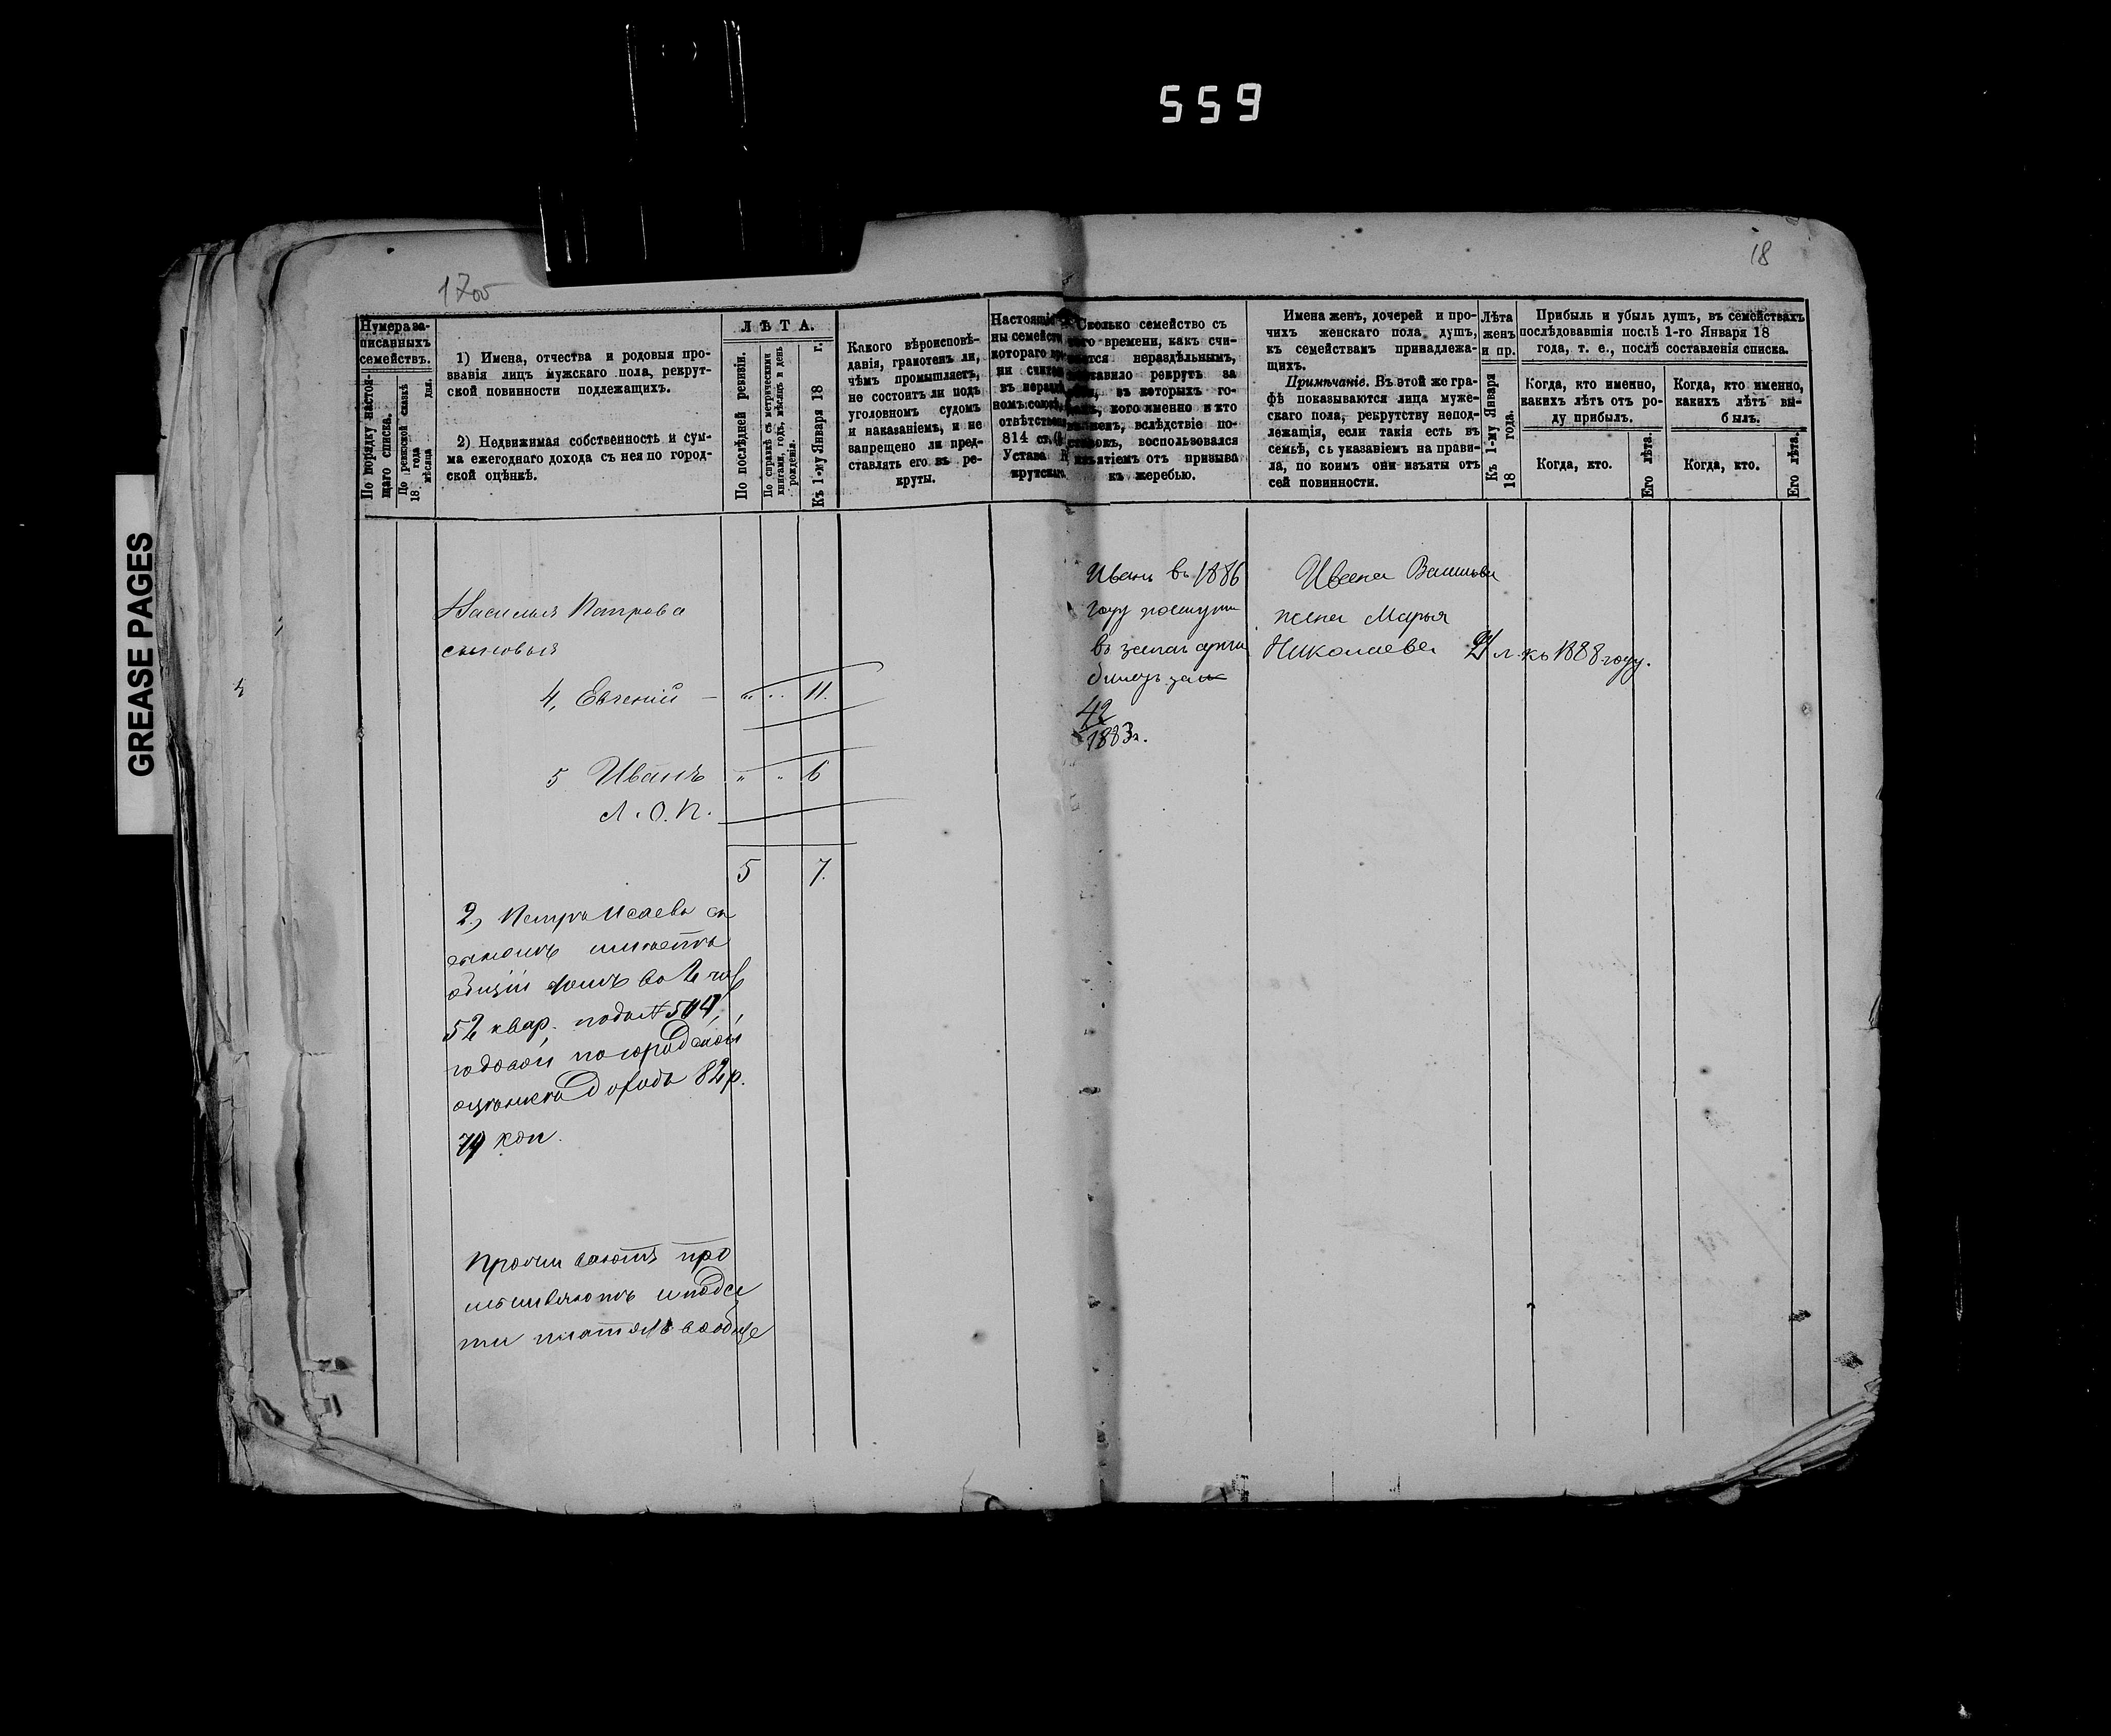 559
GREASE PAGES
18
1700
Нумера за-
писанныхъ
семействъ.
По порядку настоя-
щаго списка.
По ревизской сказкѣ
18 года
мѣсяца дня.
1) Имена, отчества и родовыя про-
званія лицъ мужскаго пола, рекрут-
ской повинности подлежащихъ.
2) Недвижимая собственность и сум-
ма ежегоднаго дохода съ нея по город-
ской оцѣнкѣ.
ЛѢТА.
По послѣдней ревизіи.
По справкѣ съ метрическими
книгами, годъ, мѣсяцъ и день
рожденія.
Къ 1-му Января 18 г.
Какого вѣроисповѣ-
данія, грамотенъ ли,
чѣмъ промышляетъ,
не состоитъ ли подъ
уголовномъ судомъ
и наказаніемъ, и не
запрещено ли пред-
ставлять его въ ре-
круты.
Настоящіе
ны семейства
котораго
ни
въ
номъ союзѣ,
отвѣтствен
814 ст.
Устава
крутскаго
Сколько семейство съ
того времени, какъ счи-
тается нераздѣльнымъ,
ставило рекрутъ за
въ которыхъ го-
дахъ, кого именно и кто
вслѣдствіе по-
воспользовался
изъятіемъ отъ призыва
къ жеребью.
Имена женъ, дочерей и про-
чихъ женскаго пола душъ,
къ семействамъ принадлежа-
щихъ.
Примѣчаніе. Въ этой же гра-
фѣ показываются лица муже-
скаго пола, рекрутству непод-
лежащія, если такія есть въ
семьѣ, съ указаніемъ на прави-
ла, по коимъ они изъяты отъ
сей повинности.
Лѣта
женъ
и пр.
Къ 1-му Января
18 года.
Прибыль и убыль душъ, въ семействахъ
послѣдовавшія послѣ 1-го Января 18
года, т. е., послѣ составленія списка.
Когда, кто именно,
какихъ лѣтъ отъ ро-
ду прибылъ.
Когда, кто.
Его лѣта.
Когда, кто именно,
какихъ лѣтъ вы-
былъ.
Когда, кто.
Его лѣта.
Василья Петрова
сыновья
4, Евгеній — " " 11.
5 Иванъ " " 6
Л. О. П.
5 7.
2, Петръ Исаевъ съ
сыномъ имѣетъ
общій домъ во 2 час
52 квар. подъ № 544,
годовой по городской
оцѣнкѣ доходъ 82 р.
74 коп.
Проживаютъ про
мышляютъ и подa
ти платятъ вообще
Иванъ въ 1886
году поступи
въ
билетъ за
42
1883 г.
Ивана Васильева
жена Марья
Николаева 21 л. къ 1888 году.